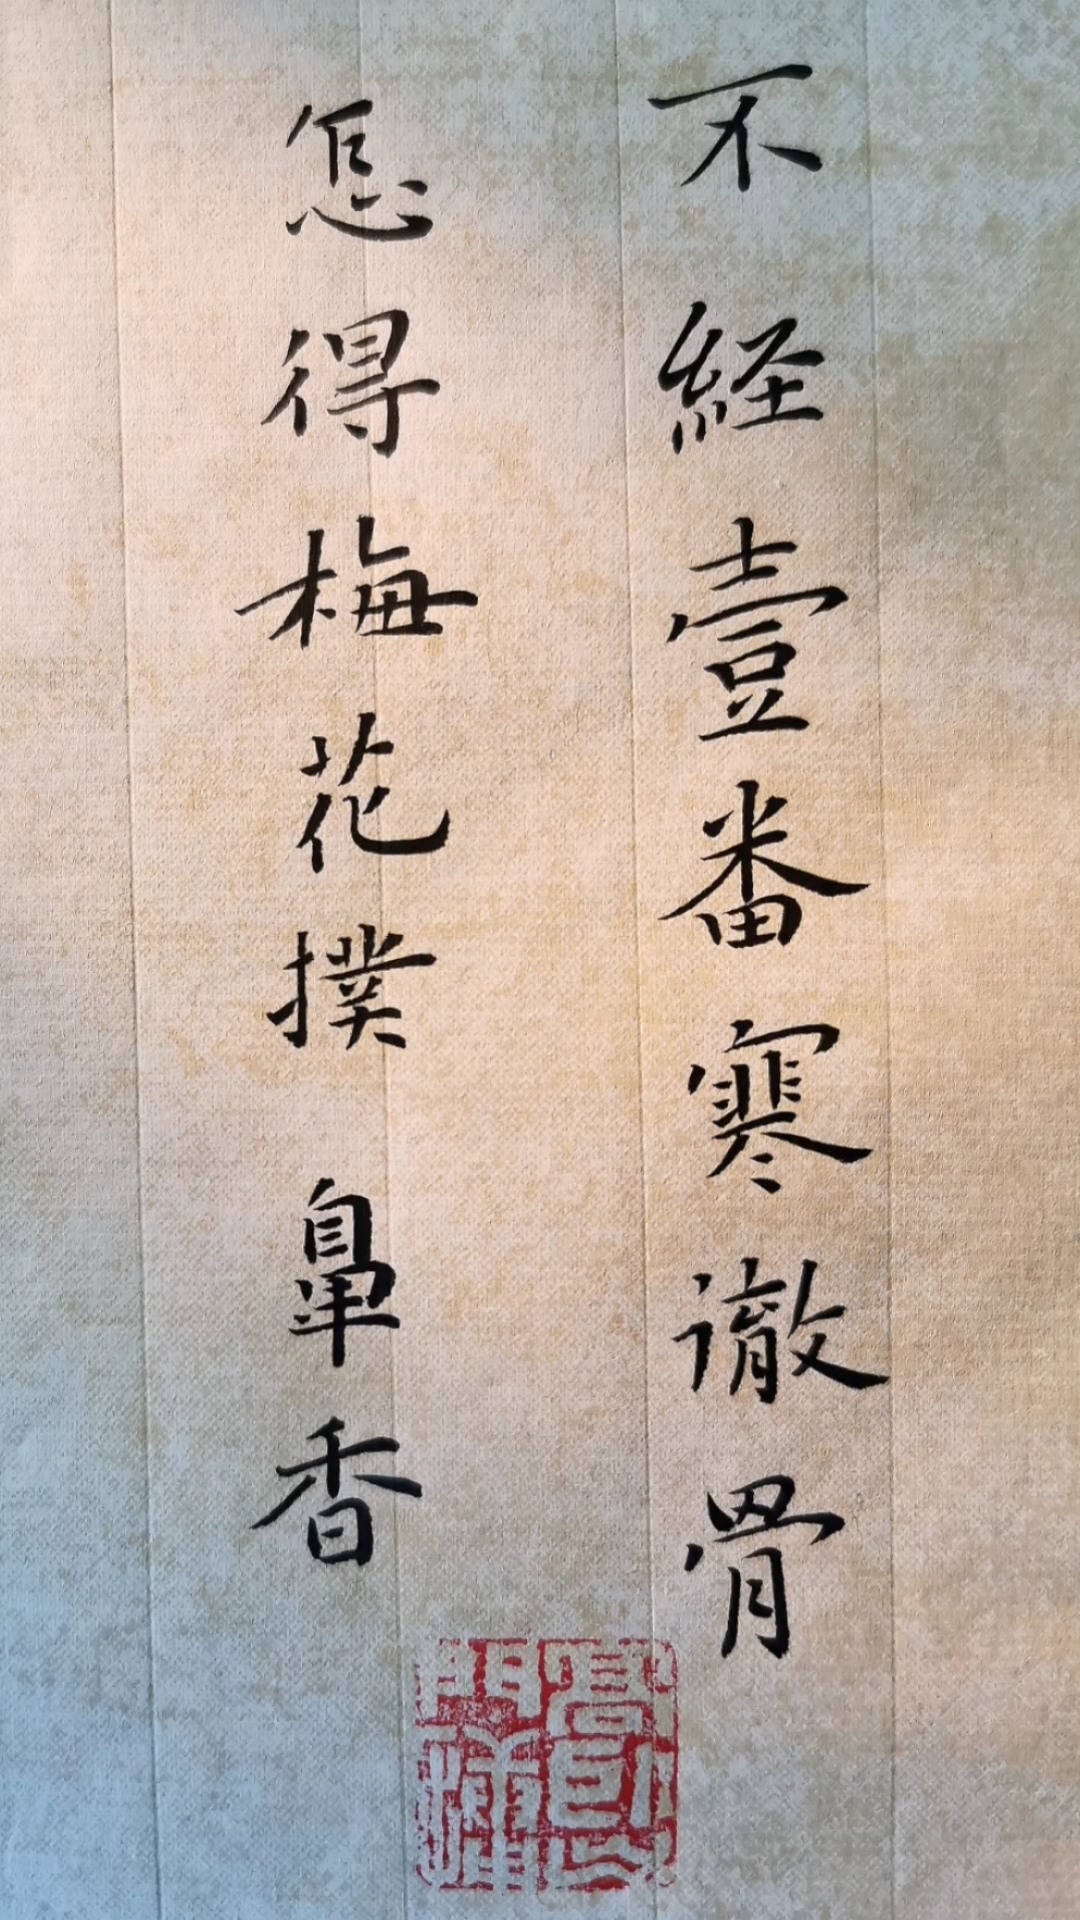 不経壹番寒徹骨
怎得梅花撲鼻香